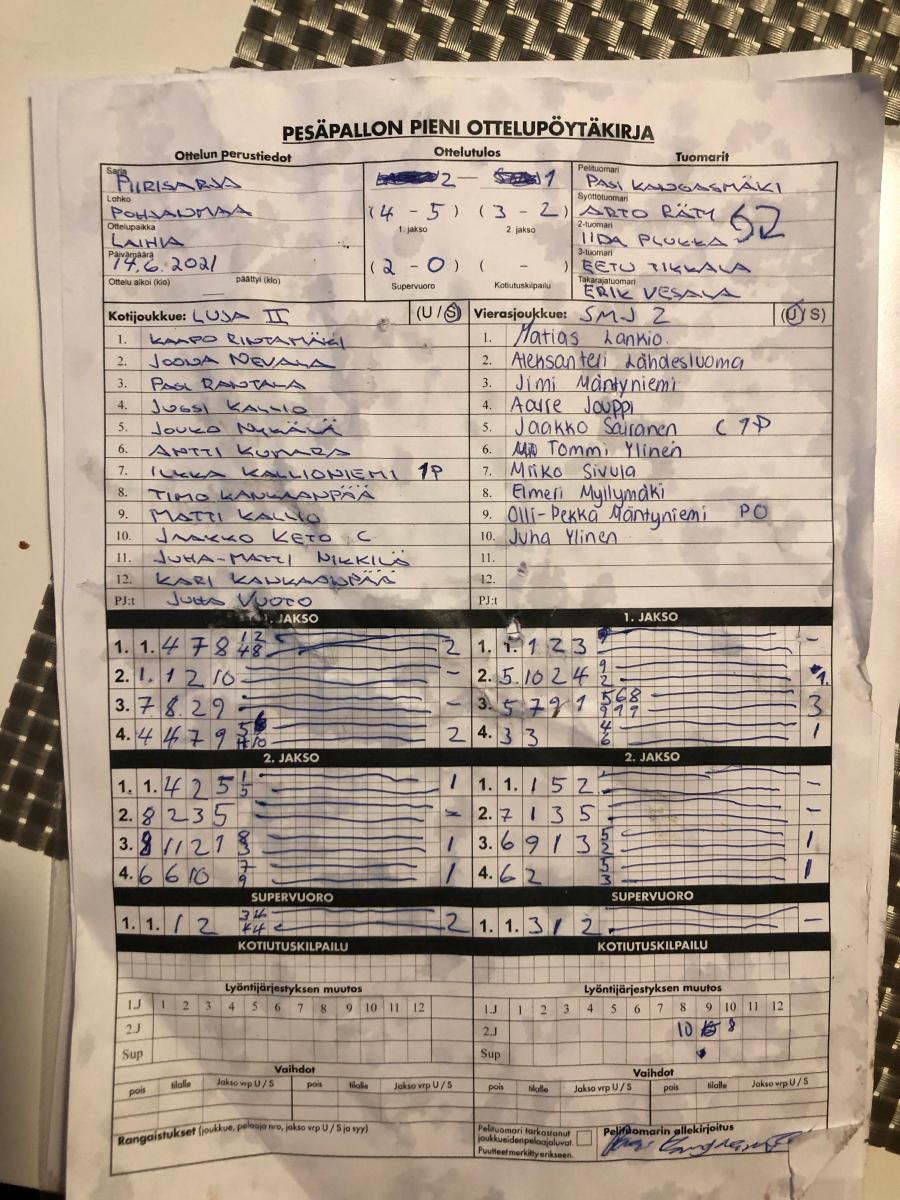 PESÄPALLON PIENI OTTELUPÖYTÄKIRJA
Ottelun perustiedot Ottelutulos Tuomarit
Sarja PIIRISARJA
Lohko POHJANMAA
Ottelupaikka LAIHIA
Päivämäärä 14.6.2021
Ottelu alkoi (klo) päättyi (klo)
2 — 1
(4 - 5) (3 - 2)
1. jakso 2. jakso
(2 - 0) ( - )
Supervuoro Kotiutuskilpailu
Pelituomari PASI KANGASMÄKI
Syöttötuomari ARTO RÄTY 52
2-tuomari IIDA PLUKKA
3-tuomari EETU TIKKALA
Takarajatuomari ERIK VESALA
Kotijoukkue: LUJA II (U / S)
1. KAAPO RINTAMÄKI
2. JOONA NEVALA
3. PASI RANTALA
4. JUSSI KALLIO
5. JOUKO NYKÄLÄ
6. ANTTI KUMARA
7. ILKKA KALLIONIEMI 1P
8. TIMO KANKAANPÄÄ
9. MATTI KALLIO
10. JAAKKO KETO C
11. JUHA-MATTI NIKKILÄ
12. KARI KANKAANPÄÄ
PJ:t JUHA VUOTO
Vierasjoukkue: SMJ 2 (U / S)
1. Matias Lankio
2. Aleksanteri Lähdesluoma
3. Jimi Mäntyniemi
4. Aarre Jouppi
5. Jaakko Sairanen C 1P
6. Tommi Ylinen
7. Miiko Sivula
8. Elmeri Myllymäki
9. Olli-Pekka Mäntyniemi PO
10. Juha Ylinen
11.
12.
PJ:t
1. JAKSO 1. JAKSO
1. 1. 4 7 8 12 48 2
2. 1. 1 2 10 -
3. 7 8 2 9 -
4. 4 4 7 9 2
1. 1. 1 2 3 -
2. 5 10 2 4 9 2 1
3. 5 7 9 1 568 999 3
4. 3 3 4 6 1
2. JAKSO 2. JAKSO
1. 1. 4 2 5 1 5 1
2. 8 2 3 5 -
3. 8 11 2 1 8 3 1
4. 6 6 10 7 9 1
1. 1. 1 5 2 -
2. 7 1 3 5 -
3. 6 9 1 3 5 2 1
4. 6 2 5 3 1
SUPERVUORO SUPERVUORO
1. 1. 1 2 34 44 2
1. 1. 3 1 2 -
KOTIUTUSKILPAILU KOTIUTUSKILPAILU
Lyöntijärjestyksen muutos Lyöntijärjestyksen muutos
1.J 1 2 3 4 5 6 7 8 9 10 11 12
2.J
Sup
1.J 1 2 3 4 5 6 7 8 9 10 11 12
2.J 10 8
Sup
Vaihdot Vaihdot
pois tilalle Jakso vrp U / S pois tilalle Jakso vrp U / S
pois tilalle Jakso vrp U / S pois tilalle Jakso vrp U / S
Rangaistukset (joukkue, pelaaja nro, jakso vrp U / S ja syy)
Pelituomari tarkastanut
joukkueiden pelaajaluvat.
Puutteet merkitty erikseen.
Pelituomarin allekirjoitus